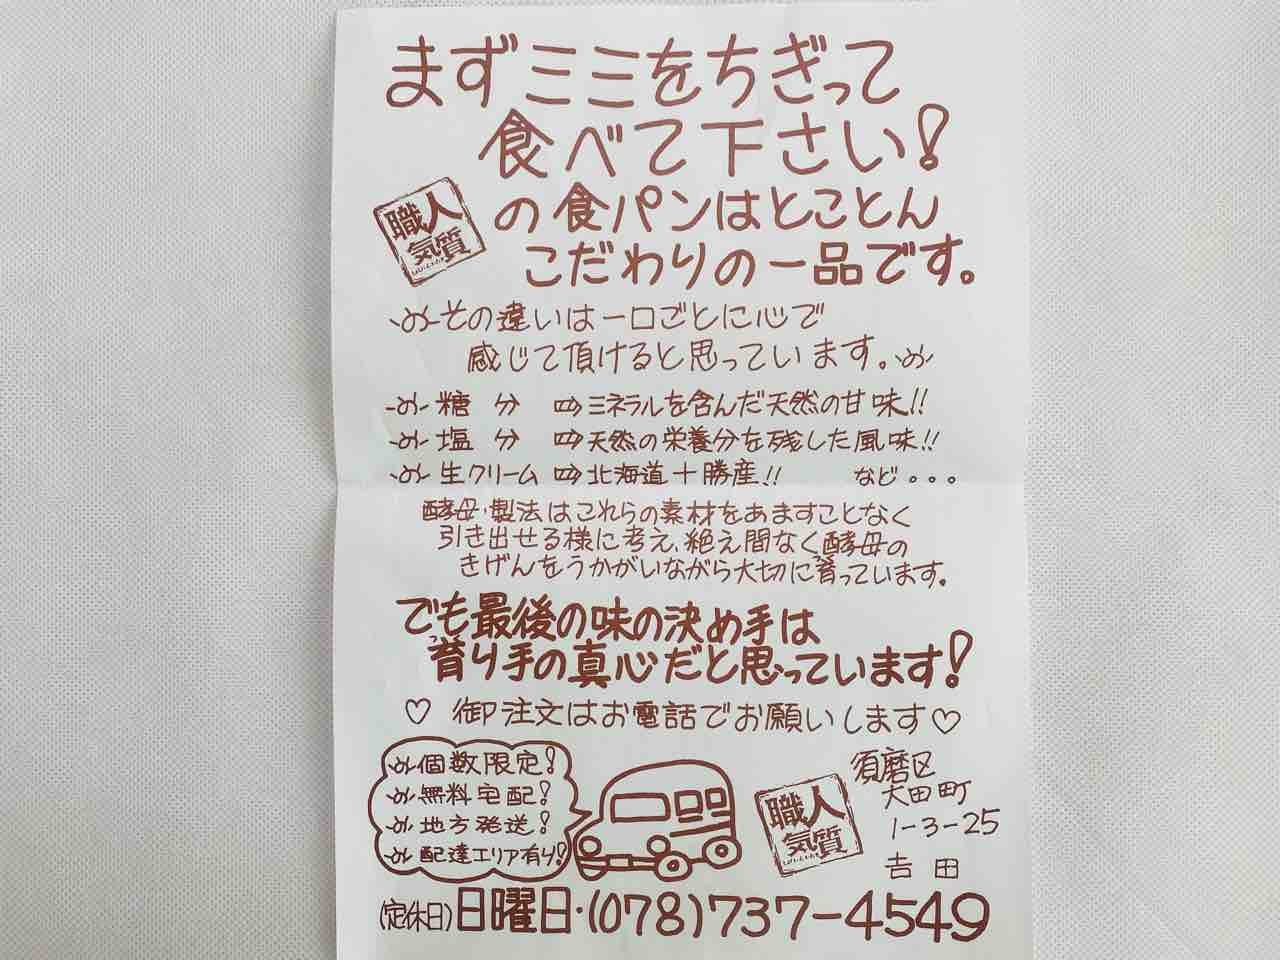 まずミミをちぎって
食べて下さい!
職人
気質
の食パンはとことん
こだわりの一品です。
その違いは一口ごとに心で
感じて頂けると思っています。
糖 分 ⇨ ミネラルを含んだ天然の甘味!!
塩 分 ⇨ 天然の栄養分を残した風味!!
生クリーム ⇨ 北海道十勝産!! など。。。
酵母・製法はこれらの素材をあますことなく
引き出せる様に考え、絶え間なく酵母の
きげんをうかがいながら大切に育っています。
でも最後の味の決め手は
育り手の真心だと思っています!
♡ 御注文はお電話でお願いします♡
個数限定!
無料宅配!
地方発送!
配達エリア有り!
職人
気質
須磨区
大田町
1-3-25
吉田
(定休日)日曜日・(078)737-4549